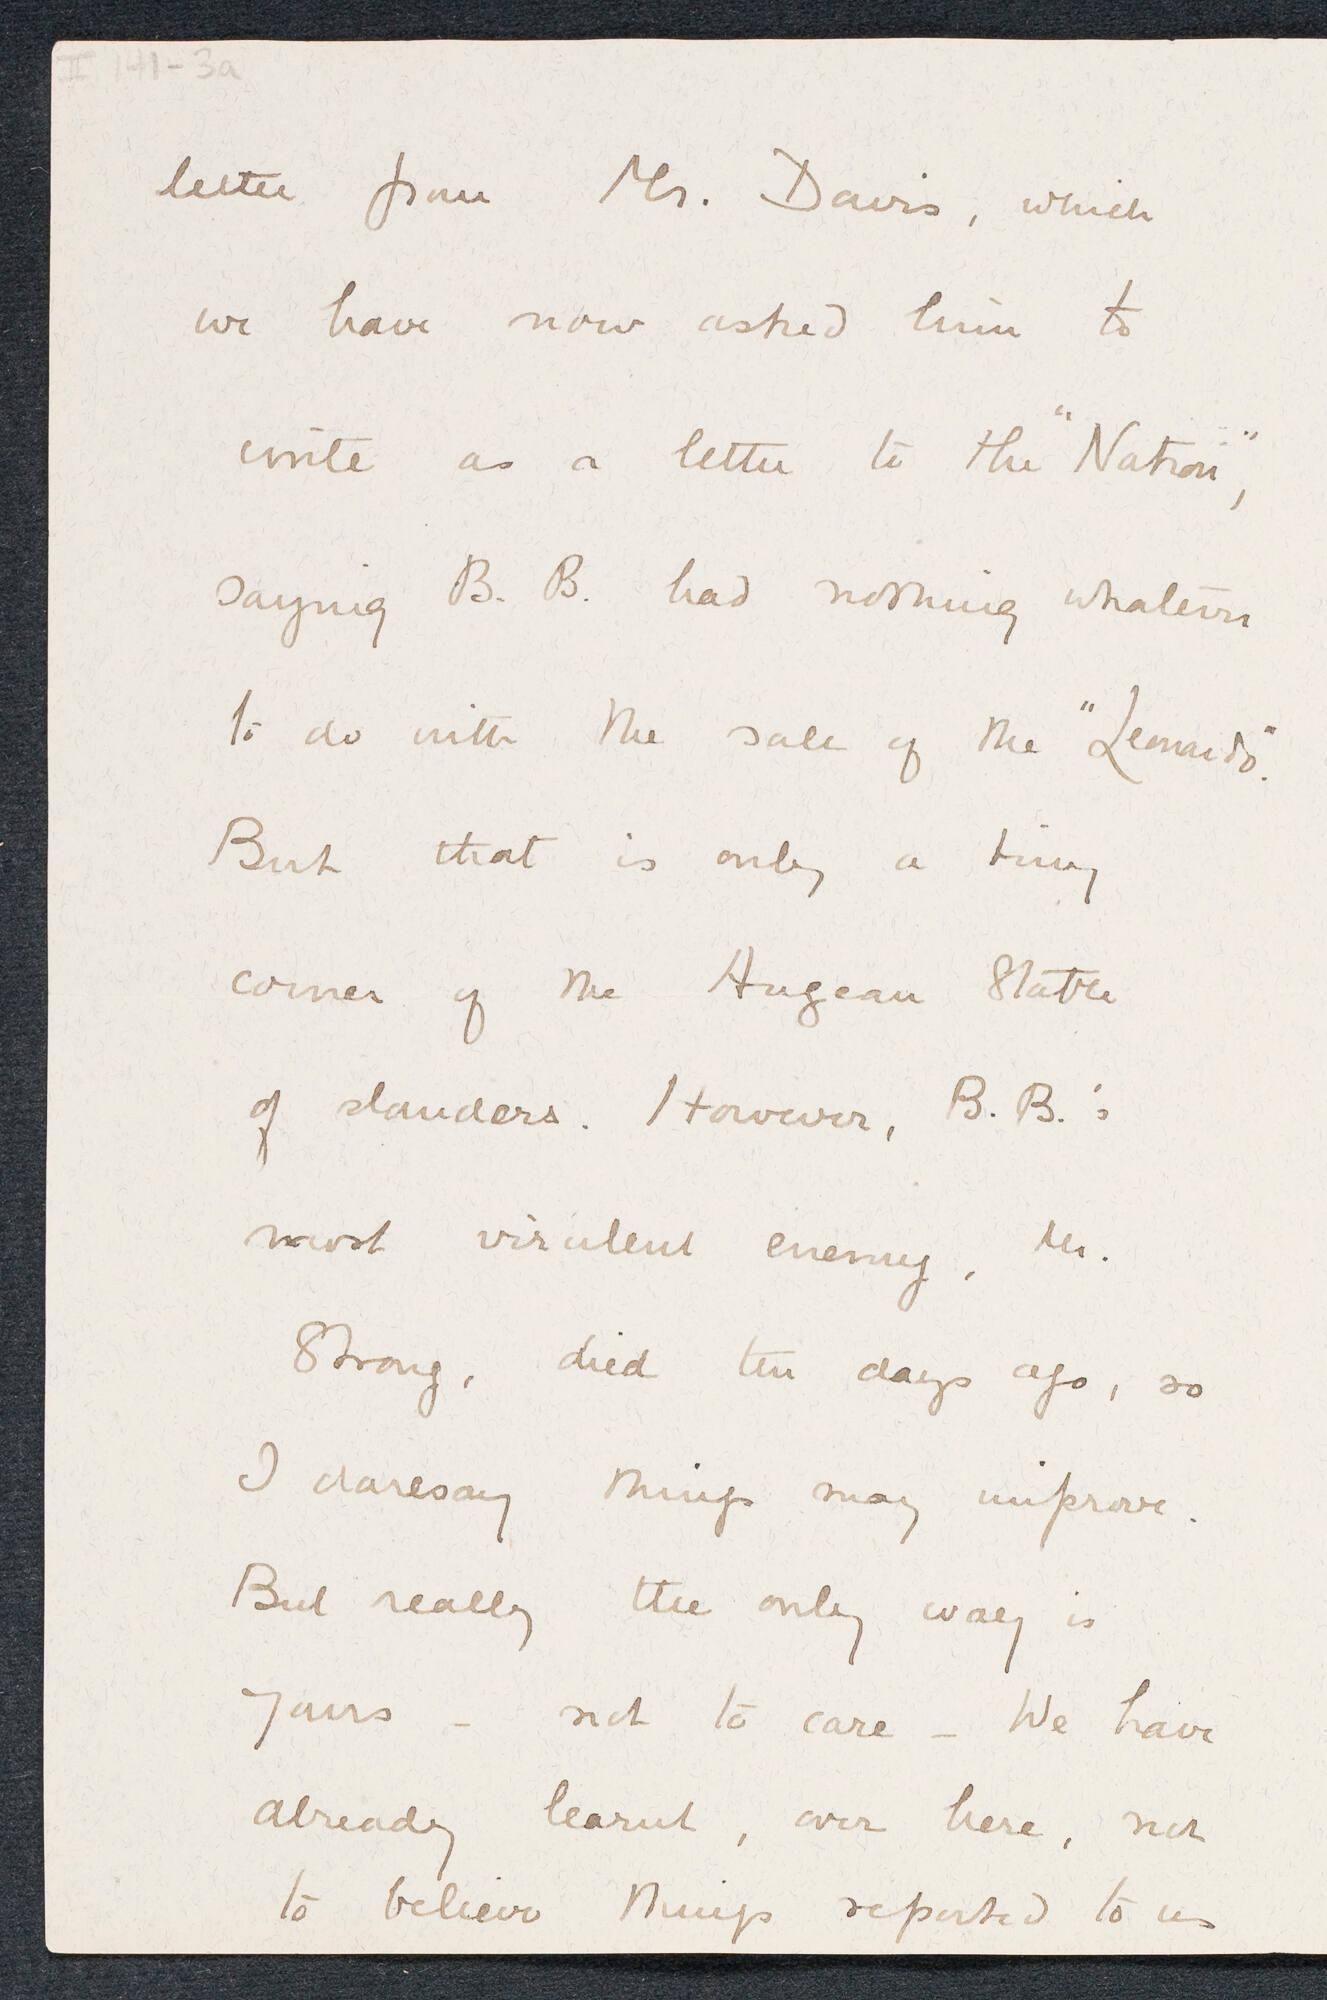 II 141-3a
letter from Mr. Davis, which
we have now asked him to
write as a letter to the "Nation",
saying B. B. had nothing whatever
to do with the sale of the "Leonardo".
But that is only a tiny
corner of the Augean Stable
of slanders. However, B. B.'s
most virulent enemy, Mr.
Strong, died ten days ago, so
I daresay things may improve.
But really the only way is
yours - not to care - We have
already learnt, over here, not
to believe things reported to us